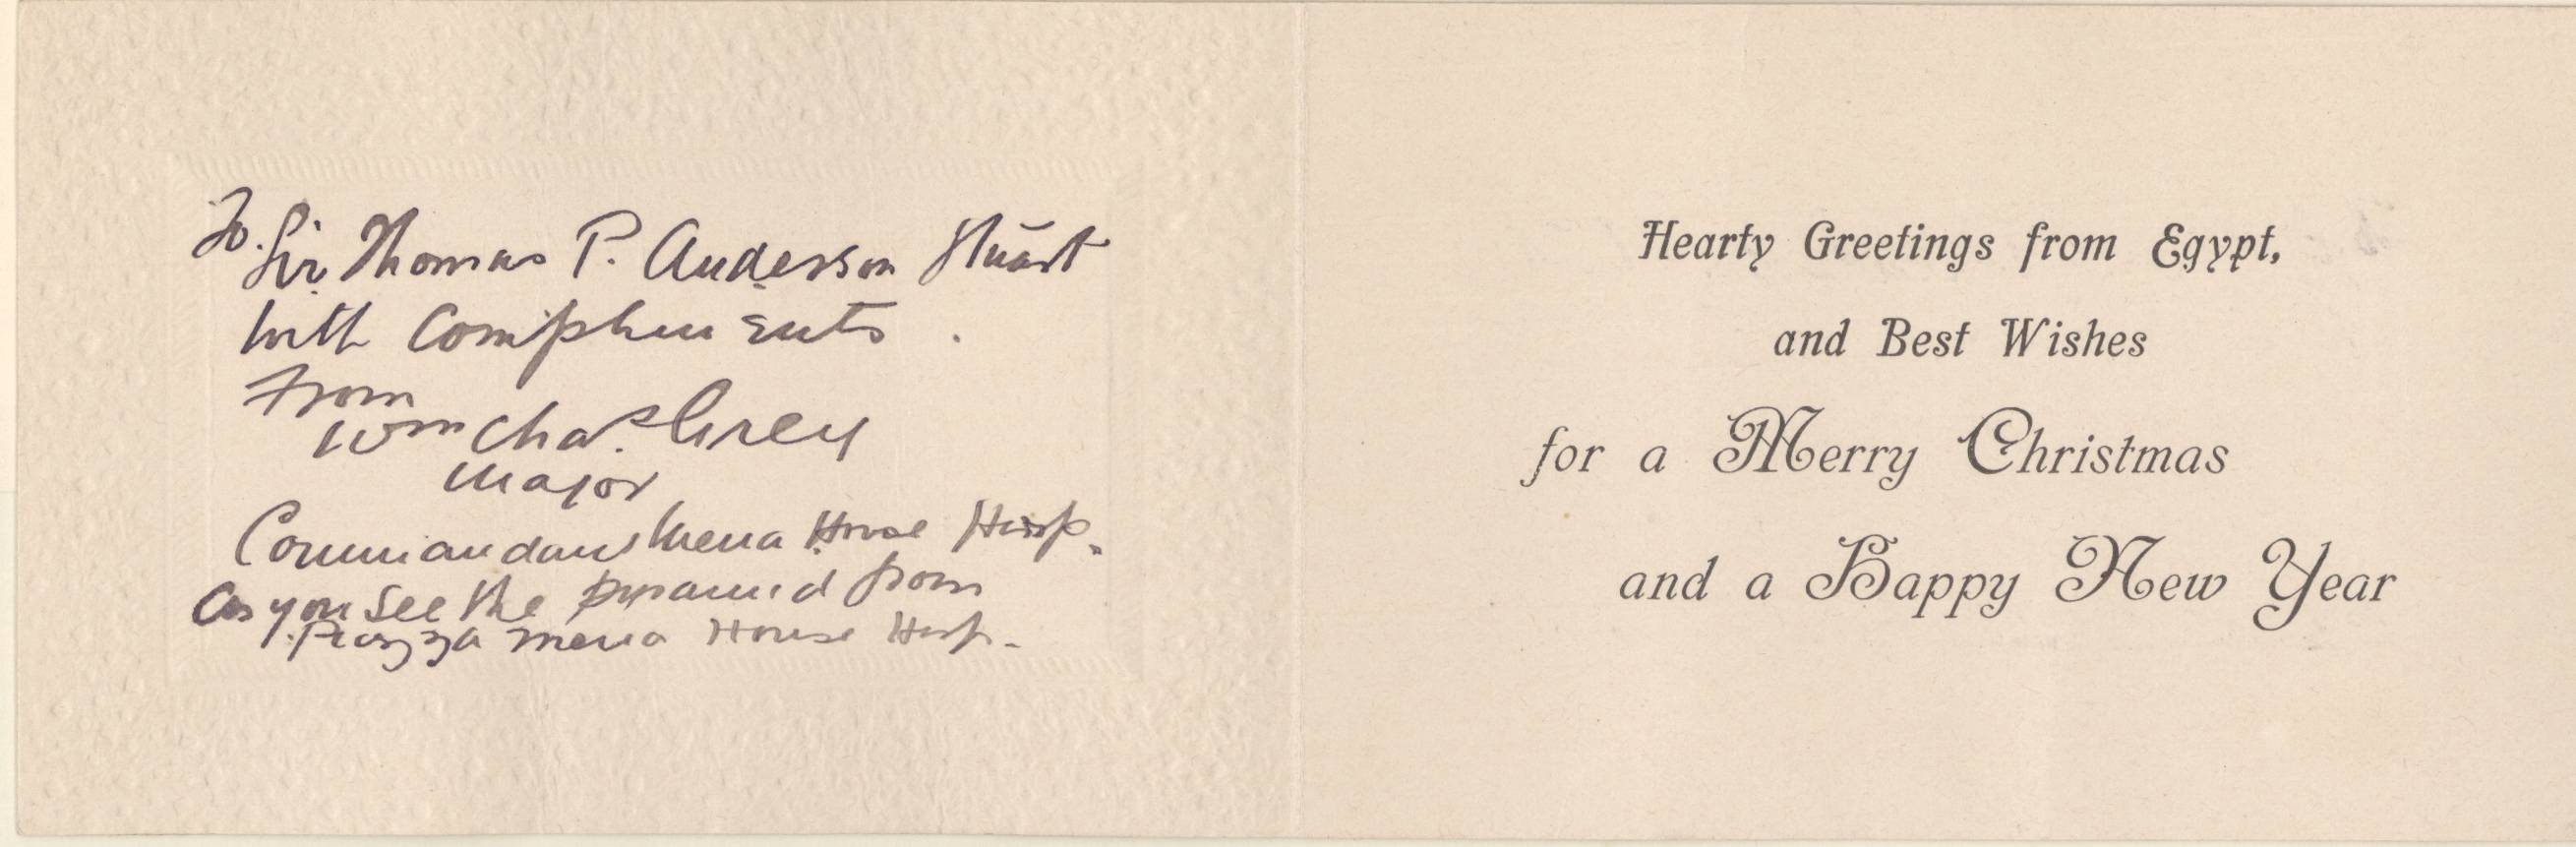 To. Sir Thomas P. Anderson Stuart
With Compliments.
From
Wm Chas. Grey
Major
Commandant Mena House Hosp.
As you see the pyramid from
Piazza Mena House Hosp.
Hearty Greetings from Egypt,
and Best Wishes
for a Merry Christmas
and a Happy New Year